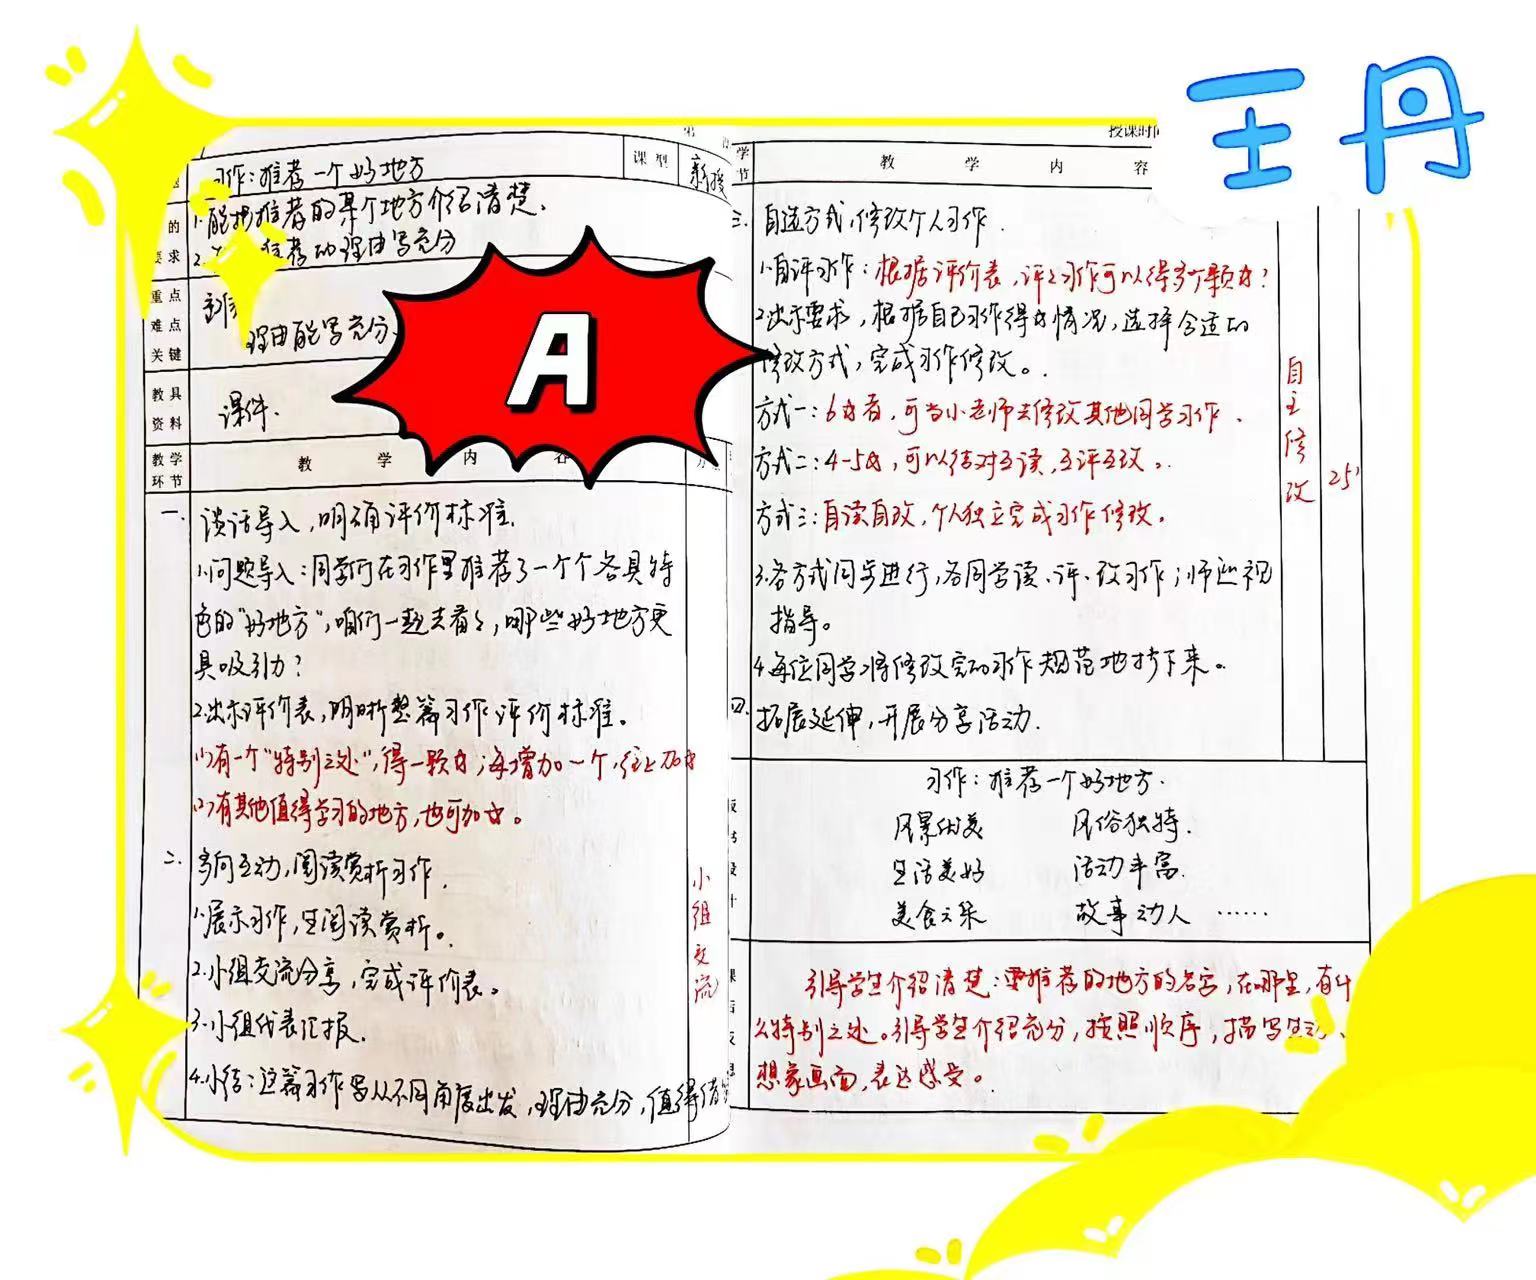 王丹
习作:推荐一个好地方
课型
新授
的
要求
1.能把推荐的某个地方介绍清楚.
推荐的理由写充分
重点
难点
关键
理由能写充分
A
教具
资料
课件.
教学
环节
教 学 内 容
一.
谈话导入,明确评价标准.
1.问题导入:同学们在习作里推荐了一个个各具特
色的“好地方”,咱们一起去看看,哪些好地方更
具吸引力?
2.出示评价表,明晰整篇习作评价标准。
(1)有一个“特别之处”,得一颗☆;每增加一个,往上加☆
(2)有其他值得学习的地方,也可加☆。
二.
多向互动,阅读赏析习作.
1.展示习作,生阅读赏析。
2.小组交流分享,完成评价表。
3.小组代表汇报.
4.小结:这篇习作写从不同角度出发,理由充分,值得借
小组交流
授课时间
学
节
教 学 内 容
三.
自选方式,修改个人习作.
1.自评习作:根据评价表,评评习作可以得多少颗☆?
2.出示要求,根据自己习作得☆情况,选择合适的
修改方式,完成习作修改。
方式一:6☆者,可当小老师去修改其他同学习作.
方式二:4-5☆,可以结对互读,互评互改。
方式三:自读自改,个人独立完成习作修改。
3.各方式同步进行,各同学读、评、改习作;师巡视
指导。
4.每位同学将修改完的习作规范地抄下来。
四.
拓展延伸,开展分享活动.
自主修改
25'
习作:推荐一个好地方.
风景优美 风俗独特.
生活美好 活动丰富.
美食云集 故事动人 ……
引导学生介绍清楚:要推荐的地方的名字,在哪里,有什
么特别之处。引导学生介绍充分,按照顺序,描写生动、
想象画面,表达感受。